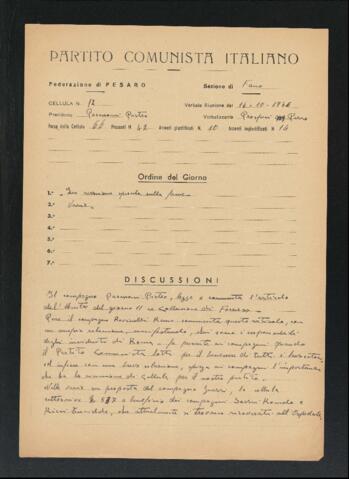 PARTITO COMUNISTA ITALIANO
Federazione di PESARO Sezione di Fano
CELLULA N. 12 Verbale Riunione del 16-10-1946
Presidente Pietro Verbalizzante Piero
Forza della Cellula 66 Presenti N. 42 Assenti giustificati N. 10 Assenti ingiustificati N. 14
Ordine del Giorno
1.° - sulla
2.° Varie
3.° -
4.° -
5.° -
6.° -
7.° -
DISCUSSIONI
Il compagno Pietro, legge e commenta l'articolo
dell'Unità del giorno 11 di
Pure il compagno commenta questo articolo, con
un'ampia relazione, sono i responsabili
degli incidenti di Roma - fa presente ai compagni quando
il Partito Comunista lotta per il benessere di tutti i lavoratori
ed infine con una breve relazione, spiega ai compagni l'importanza
che ha la riunione di Cellula per il nostro partito.
Nelle varie su proposta del compagno Guerri, la cellula
sottoscrive £ 837 a beneficio dei compagni Romolo e
che attualmente si trovano ricoverati all'Ospedale